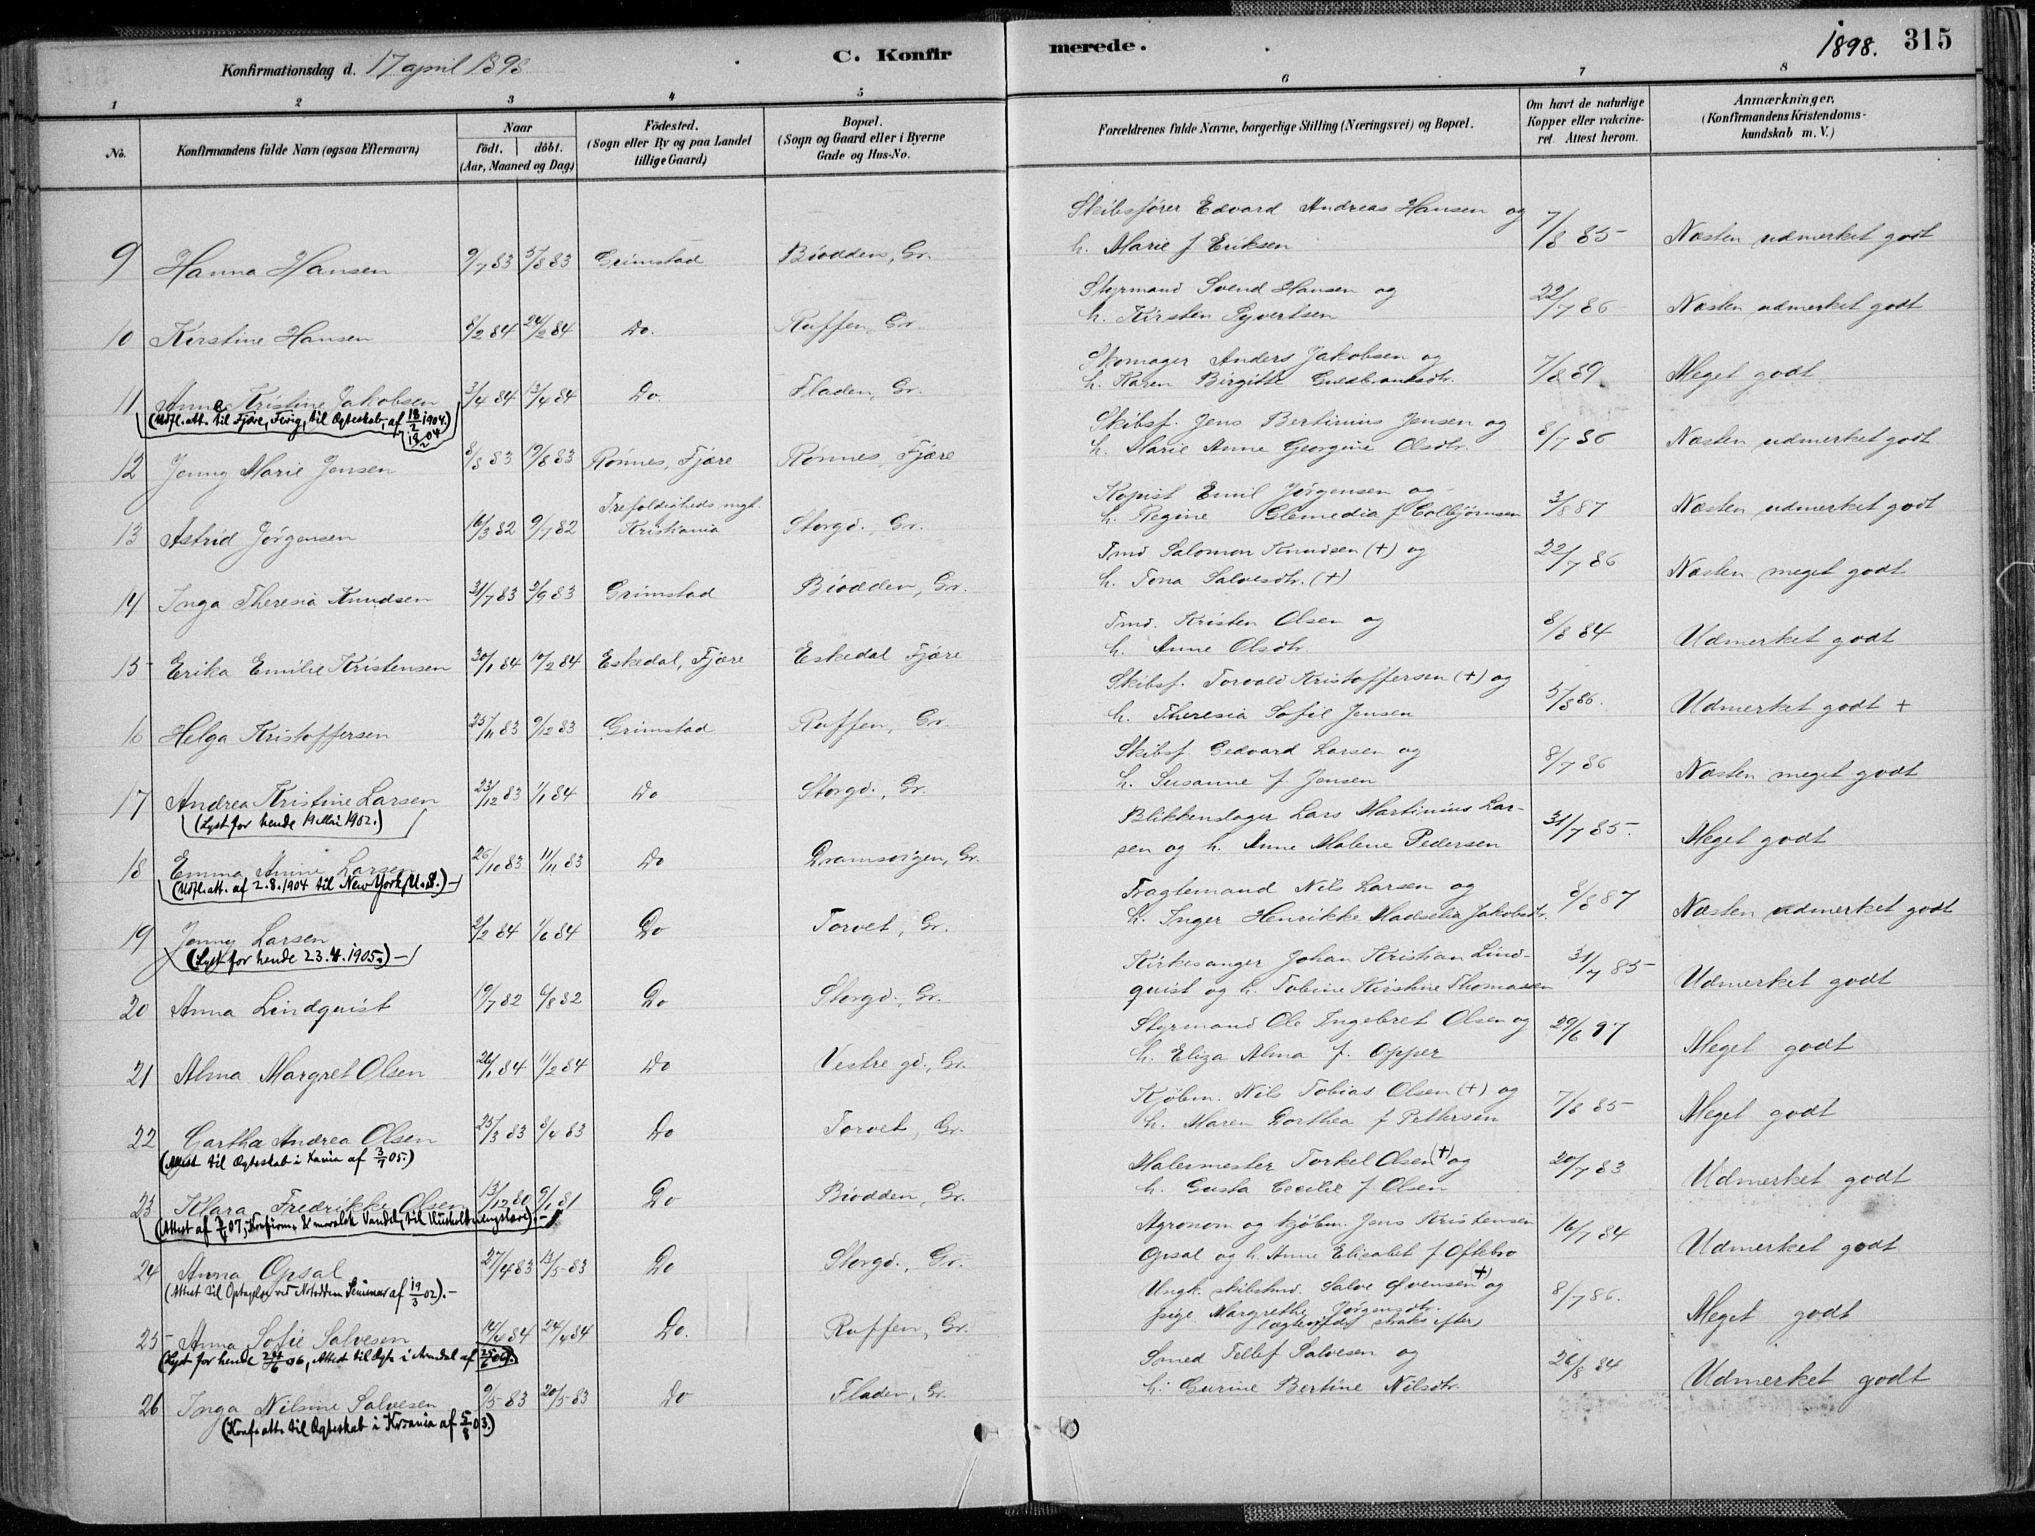 Konfirmationsdag d. 17 april 1898
C. Konfir
merede.
1898.
315
1 2 3 4 5 6 7 8
No.
Konfirmandens fulde Navn (ogsaa Efternavn)
Naar
født. døbt.
(Aar, Maaned og Dag)
Fødested.
(Sogn eller By og paa Landet
tillige Gaard)
Bopæl.
(Sogn og Gaard eller i Byerne
Gade og Hus-No.
Forældrenes fulde Navne, borgerlige Stilling (Næringsvei) og Bopæl.
Om havt de naturlige
Kopper eller vakcine-
ret. Attest herom.
Anmærkninger,
(Konfirmandens Kristendoms-
kundskab m. V.)
Skibsfører Edvard Andreas Hansen og
9 Hanna Hansen 9/7 83 5/8 83 Grimstad Biodden, Gr. h. Marie f Eriksen 7/8 85 Næsten udmerket godt
Styrmand Svend Hansen og
10 Kirstine Hansen 8/2 84 24/2 84 Do. Ruffen, Gr. h. Kirsten Syvertsen 22/7 86 Næsten udmerket godt
Skomager Anders Jakobsen og
11 Anna Kristine Jakobsen 3/4 84 13/4 84 Do. Fladen, Gr. h. Karen Birgitte Guldbrandsdtr. 7/8 89 Meget godt
(Udfl. att. til Fjære, Fevig, til Ægteskab, af 18/2 1904.)
Skibsf. Jens Bertinius Jensen og
12 Jenny Marie Jensen 8/8 83 19/8 83 Rønnes, Fjære Rønnes, Fjære h. Marie Anne Georgine Olsdtr. 8/7 86 Næsten udmerket godt
Kopist Emil Jørgensen og
13 Astrid Jørgensen 16/3 82 9/7 82 Trefoldigheds mgh. Kristiania Storgd., Gr. h. Regine Clemedia f Colbjørnsen 3/8 87 Næsten udmerket godt
Tmd Salomon Knudsen (+) og
14 Inga Theresia Knudsen 31/7 83 2/9 83 Grimstad Biodden, Gr. h. Tona Salvesdtr. (+) 22/7 86 Næsten meget godt
Tmd. Kristen Olsen og
15 Erika Emilie Kristensen 30/1 84 10/2 84 Eskedal, Fjære Eskedal Fjære h. Anne Olsdtr. 8/8 84 Udmerket godt
Skibsf. Torvald Kristoffersen (+) og
16 Helga Kristoffersen 25/11 83 9/12 83 Grimstad Ruffen, Gr. h. Theresia Sofie Jensen 5/8 86. Udmerket godt +
Skibsf. Gedvard Larsen og
17 Andrea Kristine Larsen 23/12 83 1/1 84 Do Storgd., Gr. h. Susanne f Jensen 8/7 86 Næsten meget godt
(Lyst for hende 19 Mai 1902.)
Blikkenslager Lars Martinius Lar-
18 Emma Anine Larsen 26/10 83 11/11 83 Do Dramsvigen, Gr. sen og h. Anne Malene Pedersen 31/7 85. Meget godt
(Udfl. att. af 2.8.1904 til New York, U.S.) -
Fragtemand Nils Larsen og
19 Jenny Larsen 2/2 84 1/6 84 Do Torvet, Gr. h. Inger Henrikke Madselia Jakobsdtr. 8/8 87 Næsten udmerket godt
(Lyst for hende 23.4.1905.) -
Kirkesanger Johan Kristian Lind-
20 Anna Lindquist 19/7 82 6/8 82 Do Storgd., Gr. quist og h. Tobine Kirstine Thomassen 31/7 85 Udmerket godt
Styrmand Ole Ingebret Olsen og
21 Alma Margret Olsen 26/1 84 11/2 84 Do Vestre gd., Gr. h. Eliza Alma f. Opper 29/6 97 Meget godt
Kjøbm. Nils Tobias Olsen (+) og
22 Gartha Andrea Olsen 25/3 83 8/4 83 Do Torvet, Gr. h. Maren Dorthea f Pettersen 7/8 85 Meget godt
(Attest til Ægteskab i Xania af 3/7 05.)
Malermester Torkel Olsen (+) og
23 Klara Fredrikke Olsen 13/12 80 9/1 81 Do Biodden, Gr. h. Gusta Cecilie f. Olsen 20/7 83 Udmerket godt
(Attest af 07, Konfirm. & moralsk Vandel, til Husholdningslære). -
Agronom og kjøbm. Jens Kristensen
24 Anna Opsal 27/4 83 13/5 83 Do Storgd., Gr. Opsal og h. Anne Elisabet f Oftebro 16/7 84 Udmerket godt
(Attest til Optagelse ved Notodden Seminar af 19/3 02). -
Ungk. skibstmd. Salve Svensen (+) og
25 Anna Sofie Salvesen 14/4 84 24/4 84 Do. Ruffen, Gr. pige Margrethe Jørgensdtr. 8/7 86. Meget godt
(ægteviet straks efter)
(Lyst for hende 24/6 06, Attest til Ægte. i Arendal af 25/6 06.)
Smed Tellef Salvesen og
26 Inga Nilsine Salvesen 9/5 83 20/5 83 Do Fladen, Gr. h. Gurine Bertine Nilsdtr. 26/8 84 Udmerket godt
(Konf. att. til Ægteskab i Krania af 5/8 03.)